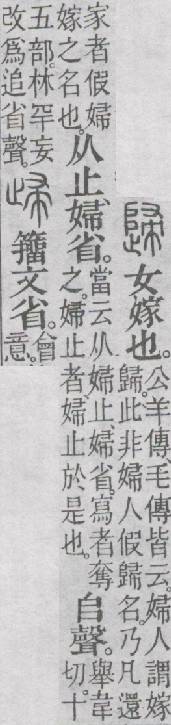 歸女嫁也。
公羊傳、毛傳皆云。婦人謂嫁
歸。此非婦人假歸名。乃凡還
家者假婦
嫁之名也。
从止。婦省。
當云从婦止、婦省。寫者奪
之。婦止者、婦止於是也。
𠂤聲。
舉韋
切。十
五部。林罕妄
改爲追省聲。
㱕籒文省。
會
意。